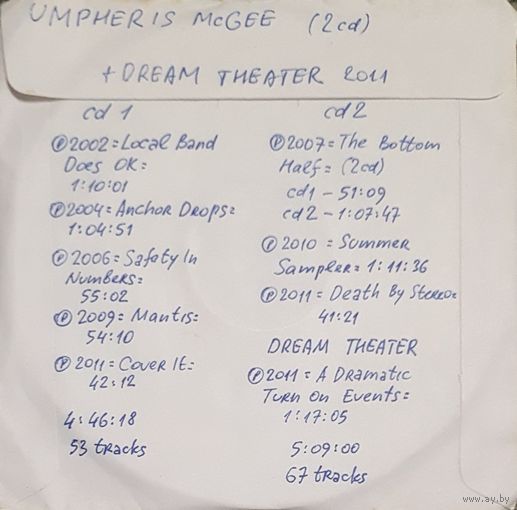 UMPHERIS McGEE (2cd)
+ DREAM THEATER 2011
cd 1
Ⓟ 2002 = Local Band
Does OK =
1:10:01
Ⓟ 2004 = Anchor Drops =
1:04:51
Ⓟ 2006 = Safety In
Numbers =
55:02
Ⓟ 2009 = Mantis =
54:10
Ⓟ 2011 = Cover It =
42:12
4:46:18
53 tracks
cd 2
Ⓟ 2007 = The Bottom
Half = (2cd)
cd1 – 51:09
cd2 – 1:07:47
Ⓟ 2010 = Summer
Sampler = 1:11:36
Ⓟ 2011 = Death By Stereo =
41:21
DREAM THEATER
Ⓟ 2011 = A Dramatic
Turn On Events =
1:17:05
5:09:00
67 tracks
www.ay.by